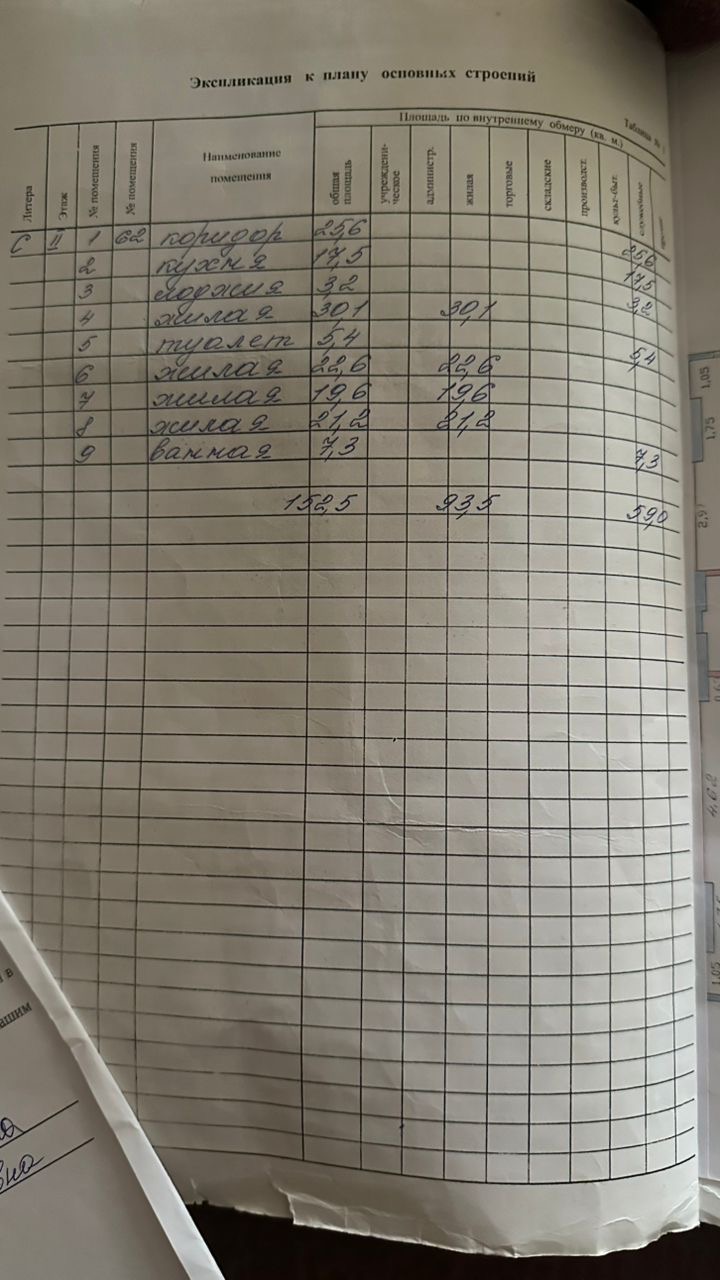 Экспликация к плану основных строений
Таблица №
Площадь по внутреннему обмеру (кв. м.)
Литера Этаж № помещения № помещения Наименование помещения общая площадь учреждени-ческое администр. жилая торговые складские производст. культ-быт. служебные
С II 1 62 коридор 25,6 25,6
2 кухня 17,5 17,5
3 лоджия 3,2 3,2
4 жилая 30,1 30,1
5 туалет 5,4 5,4
6 жилая 22,6 22,6
7 жилая 19,6 19,6
8 жилая 21,2 21,2
9 ванная 7,3 7,3
152,5 93,5 59,0
1,05
1,75
2,9
4,62
1,05
в
ашим